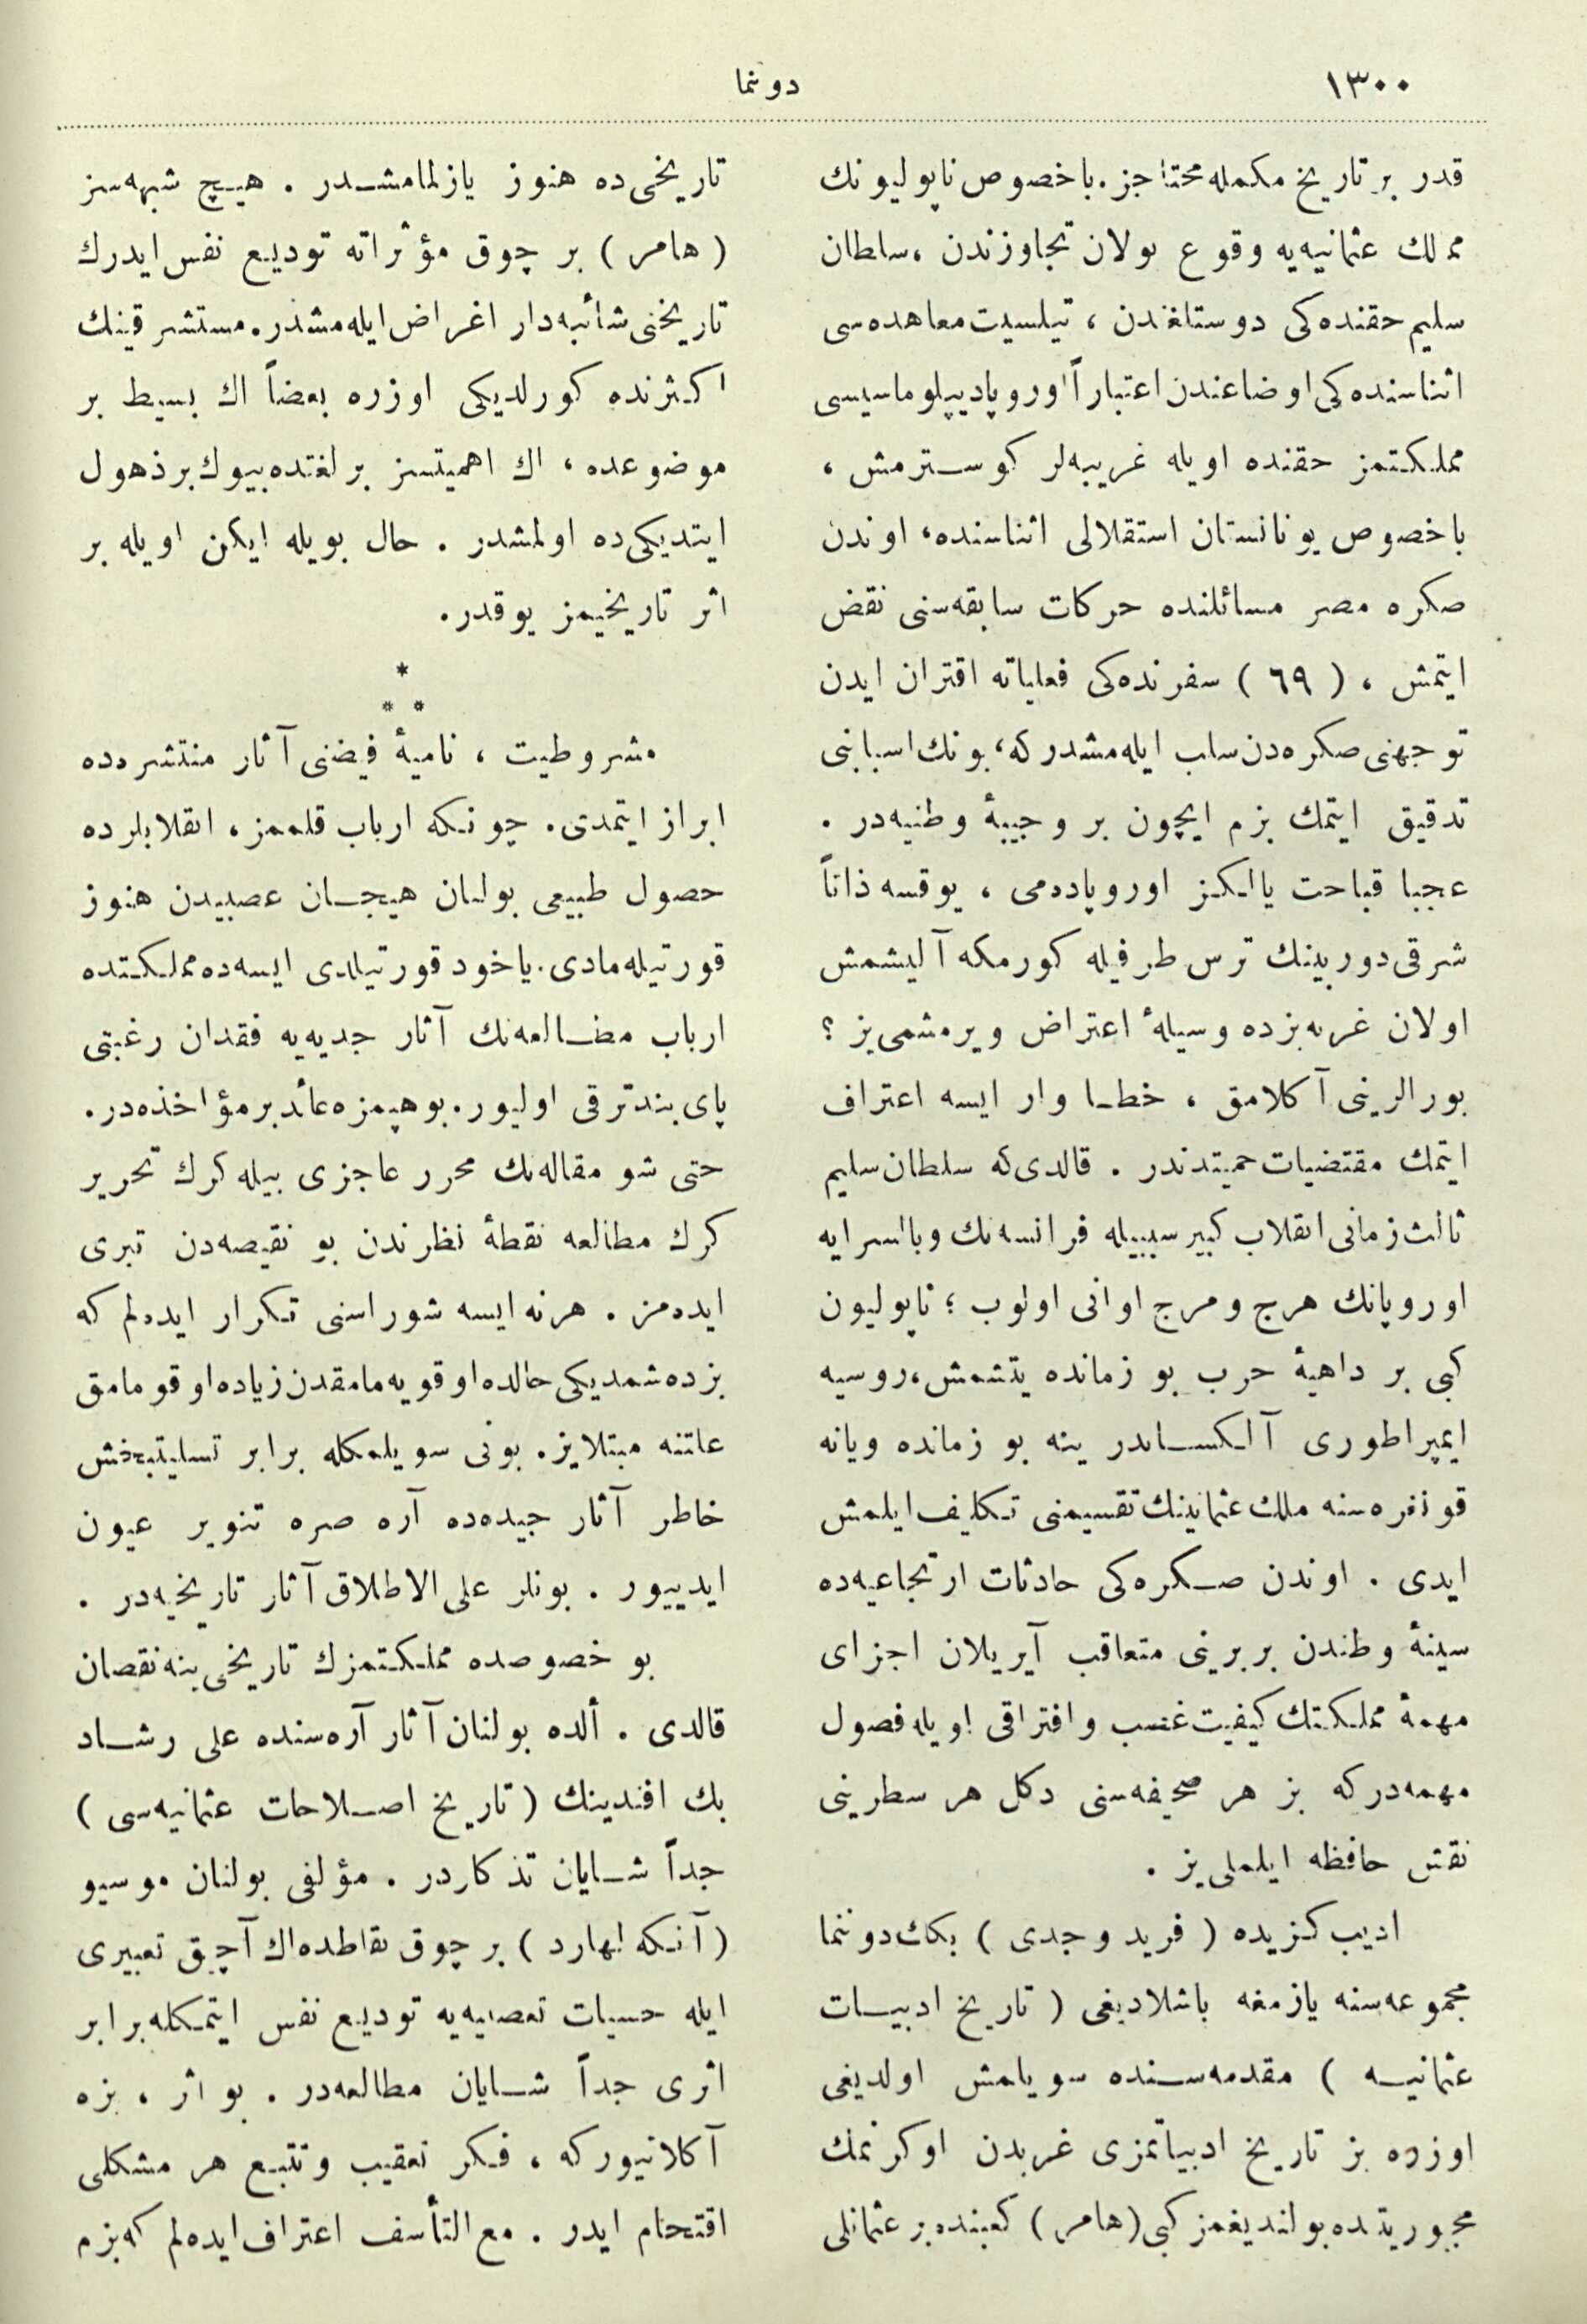 ١٣٠٠
دوننما
قدر بر تاریخ مکمله محتاجز. باخصوص ناپولیونك
ممالك عثمانیه‌یه وقوع بولان تجاوزندن ، سلطان
سلیم حقنده‌کی دوستلغندن ، تیلسیت معاهده‌سی
اثناسنده‌کی اوضاعندن اعتباراً اوروپا دیپلوماسیسی
مملکتمز حقنده اویله غریبه‌لر کوسترمش ،
باخصوص یونانستان استقلالی اثناسنده، اوندن
صکره مصر مسائلنده حرکات سابقه‌سنی نقض
ایتمش ، ( ٦٩ ) سفرنده‌کی فعلیاته اقتران ایدن
توجهنی صکره‌دن سلب ایله‌مشدرکه، بونك اسبابنی
تدقیق ایتمك بزم ایچون بر وجیبهٔ وطنیه‌در .
عجبا قباحت یالکز اوروپاده‌می ، یوقسه ذاتاً
شرقی دوربینك ترس طرفیله کورمکه آلیشمش
اولان غربه بزده وسیلهٔ اعتراض ویرمشمی‌یز ؟
بورالرینی آکلامق ، خطا وار ایسه اعتراف
ایتمك مقتضیات حمیتدندر . قالدی‌که سلطان سلیم
ثالث زمانی انقلاب کبیر سببیله فرانسه‌نك وبالسرایه
اوروپانك هرج ومرج اوانی اولوب ؛ ناپولیون
کبی بر داهیهٔ حرب بو زمانده یتشمش، روسیه
ایمپراطوری آلکساندر ینه بو زمانده ویانه
قونفره‌سنه ملك عثمانینك تقسیمنی تکلیف ایلمش
ایدی . اوندن صکره‌کی حادثات ارتجاعیه‌ده
سینهٔ وطندن بربرینی متعاقب آیریلان اجزای
مهمهٔ مملکتك کیفیت غصب وافتراقی اویله فصول
مهمه‌درکه بز هر صحیفه‌سنی دکل هر سطرینی
نقش حافظه ایلملی‌یز .
ادیب کزیده ( فرید وجدی ) بکك دوننما
مجموعه‌سنه یازمغه باشلادیغی ( تاریخ ادبیات
عثمانیه ) مقدمه‌سنده سویلمش اولدیغی
اوزره بز تاریخ ادبیاتمزی غربدن اوکرنمك
مجبوریتنده بولندیغمز کبی (هامر) کعبنده بر عثمانلی
تاریخی‌ده هنوز یازلمامشدر . هیچ شبهه‌سز
( هامر ) بر چوق مؤثراته تودیع نفس ایدرك
تاریخنی شائبه‌دار اغراض ایله‌مشدر. مستشرقینك
اکثرنده کورلدیکی اوزره بعضاً اك بسیط بر
موضوعده ، اك اهمیتسز بر لغتده بیوك بر ذهول
ایتدیکی‌ده اولمشدر . حال بویله ایکن اویله بر
اثر تاریخیمز یوقدر.
*
* *
مشروطیت ، نامیهٔ فیضنی آثار منتشره‌ده
ابراز ایتمدی. چونکه ارباب قلممز ، انقلابلرده
حصول طبیعی بولنان هیجان عصبیدن هنوز
قورتیله‌مادی. یاخود قورتیلدی ایسه‌ده مملکتده
ارباب مطالعه‌نك آثار جدیه‌یه فقدان رغبتی
پای بند ترقی اولیور. بو هپمزه عائد بر مؤاخذه‌در.
حتی شو مقاله‌نك محرر عاجزی بیله کرك تحریر
کرك مطالعه نقطهٔ نظرندن بو نقیصه‌دن تبری
ایده‌مز . هرنه ایسه شوراسنی تکرار ایده‌لم که
بزده شمدیکی حالده اوقویه‌مامقدن زیاده اوقومامق
علتنه مبتلایز. بونی سویلمکله برابر تسلیتبخش
خاطر آثار جیده‌ده آره صره تنویر عیون
ایدییور . بونلر علی الاطلاق آثار تاریخیه‌در .
بو خصوصده مملکتمزك تاریخی ینه نقصان
قالدی . ألده بولنان آثار آره‌سنده علی رشاد
بك افندینك ( تاریخ اصلاحات عثمانیه‌سی )
جداً شایان تذکاردر . مؤلفی بولنان موسیو
( آنکه لهارد ) بر چوق نقاطده اك آچیق تعبیری
ایله حسیات تعصبیه‌یه تودیع نفس ایتمکله برابر
اثری جداً شایان مطالعه‌در . بو اثر ، بزه
آکلاتیورکه ، فکر تعقیب وتتبع هر مشکلی
اقتحام ایدر . مع التأسف اعتراف ایده‌لم که بزم